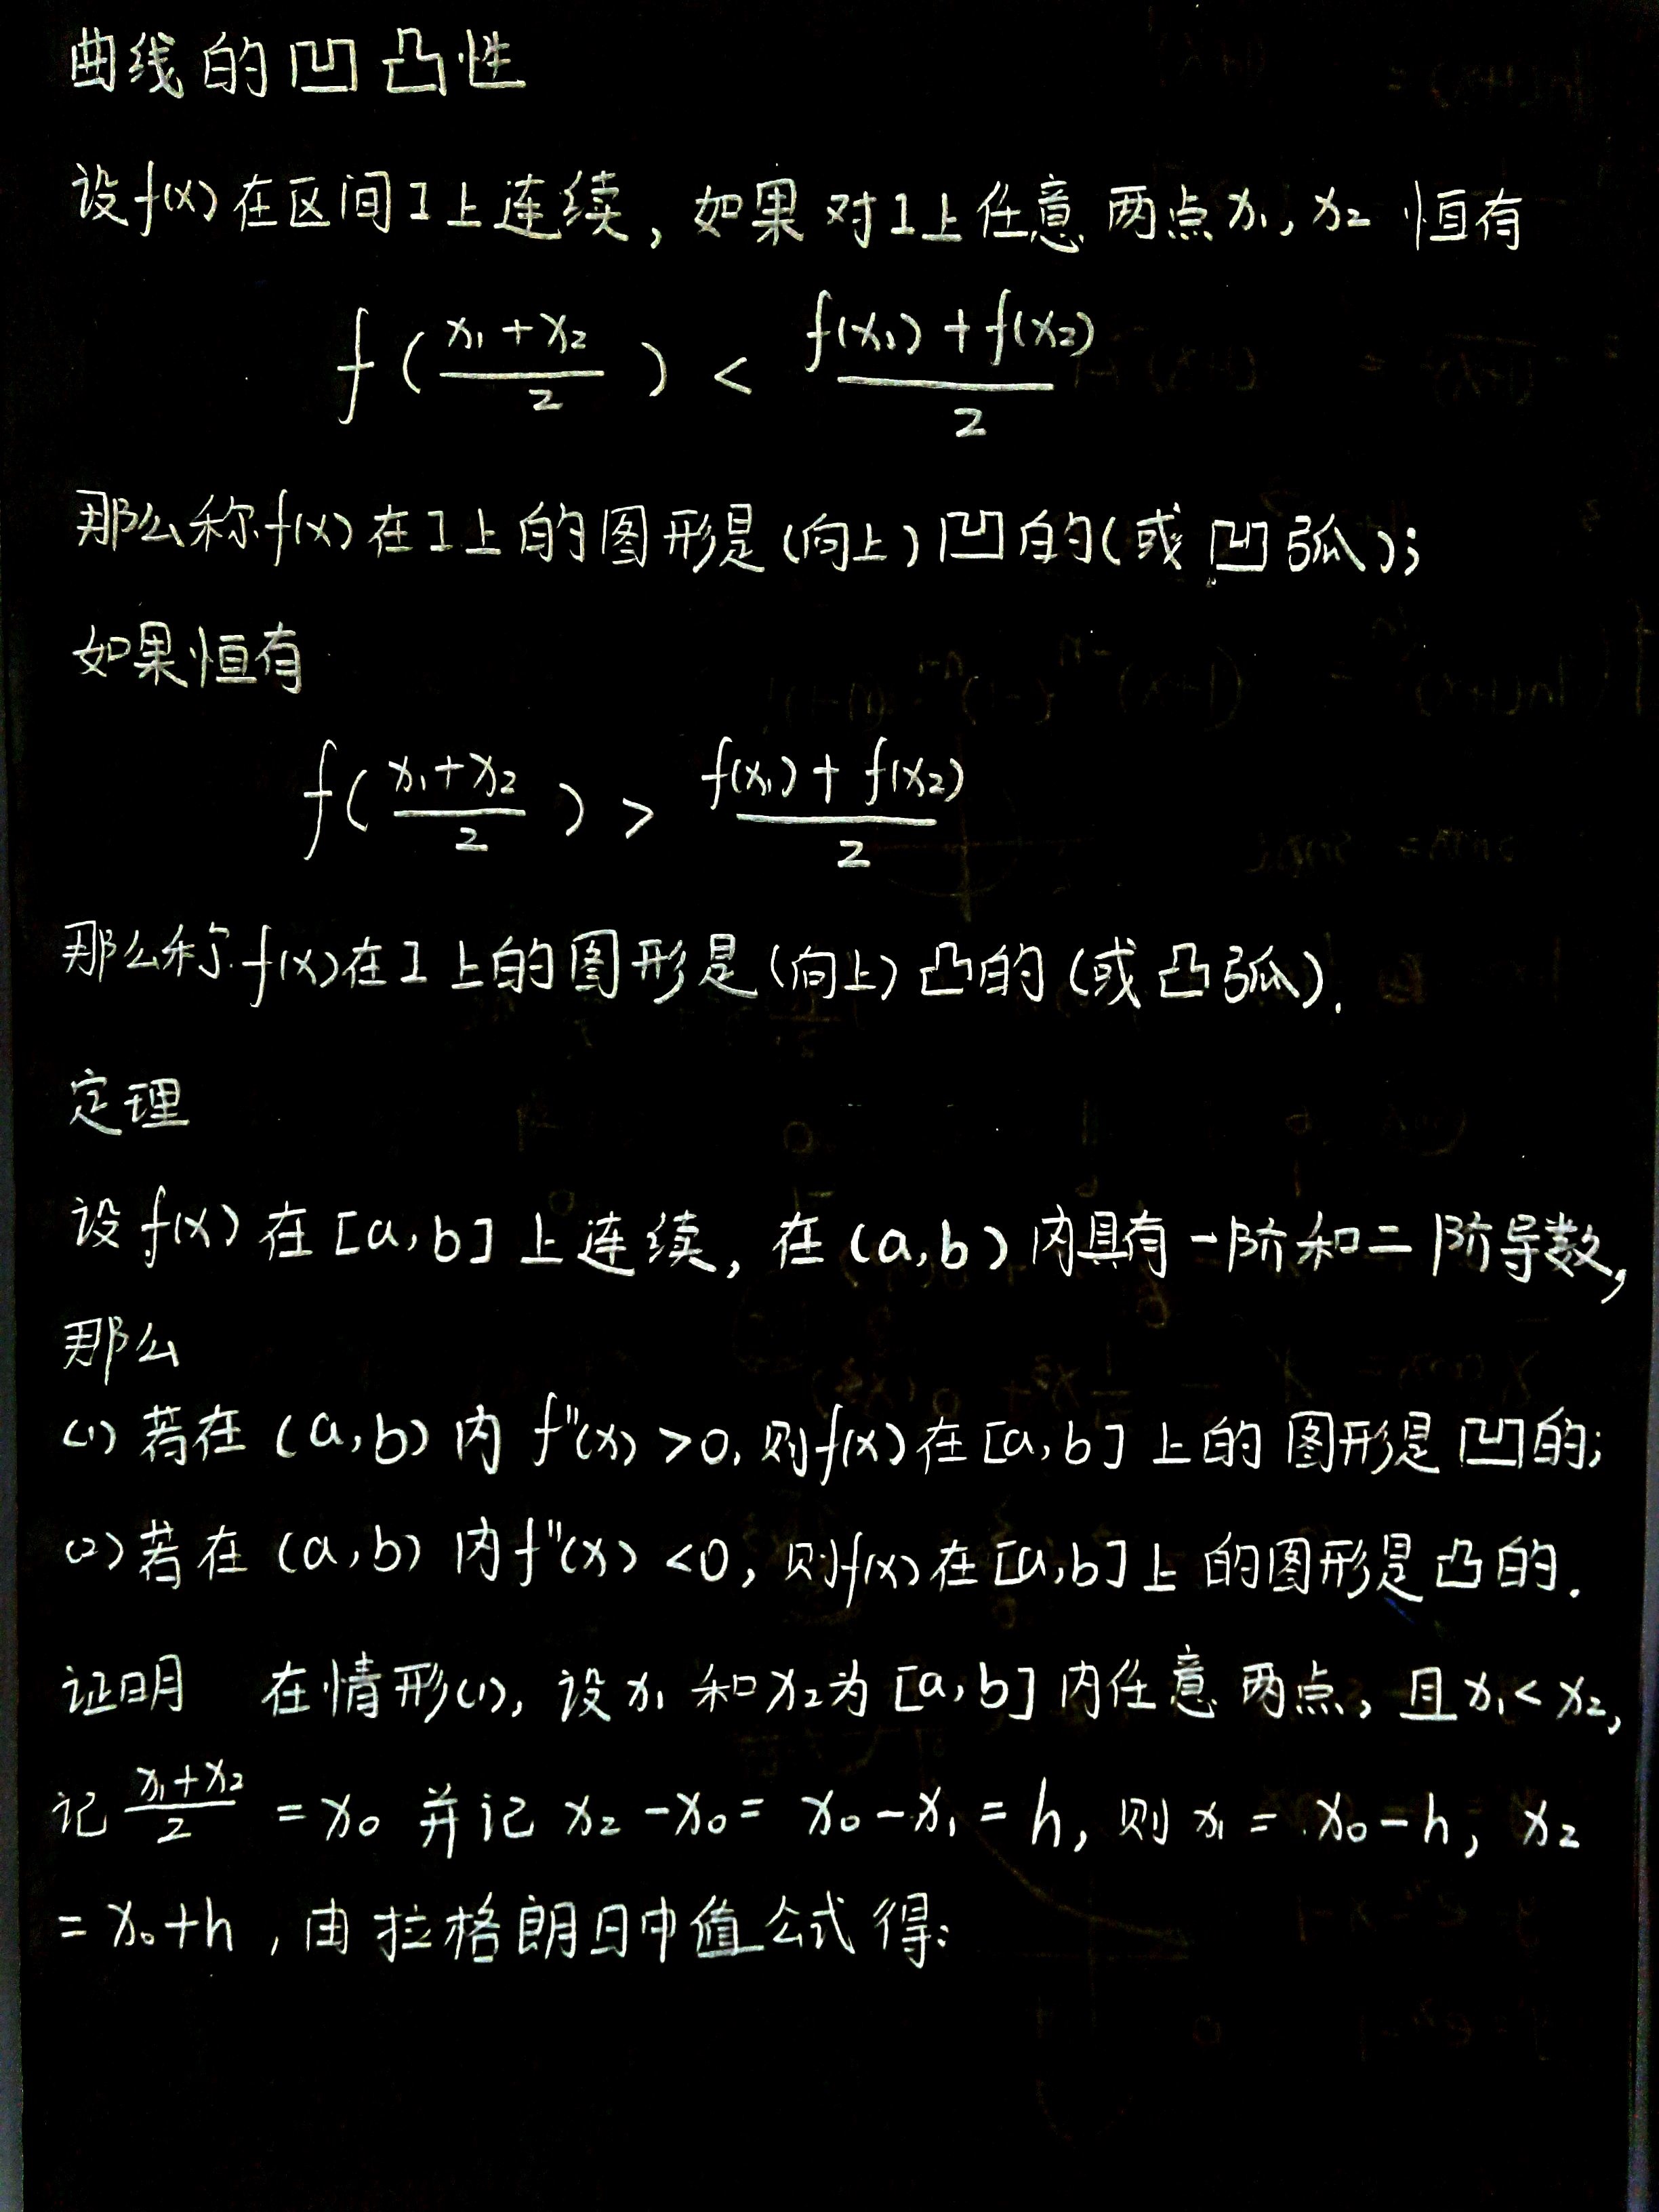 曲线的凹凸性
设f(x)在区间I上连续，如果对I上任意两点x₁, x₂ 恒有
f((x₁+x₂)/2) < (f(x₁)+f(x₂))/2
那么称f(x)在I上的图形是(向上)凹的(或凹弧);
如果恒有
f((x₁+x₂)/2) > (f(x₁)+f(x₂))/2
那么称f(x)在I上的图形是(向上)凸的(或凸弧).
定理
设f(x)在[a,b]上连续，在(a,b)内具有一阶和二阶导数,
那么
(1)若在(a,b)内f"(x)>0,则f(x)在[a,b]上的图形是凹的;
(2)若在(a,b)内f"(x)<0,则f(x)在[a,b]上的图形是凸的.
证明 在情形(1),设x₁和x₂为[a,b]内任意两点,且x₁<x₂,
记 (x₁+x₂)/2 = x₀ 并记 x₂-x₀= x₀-x₁=h, 则x₁=x₀-h, x₂
=x₀+h,由拉格朗日中值公式得: